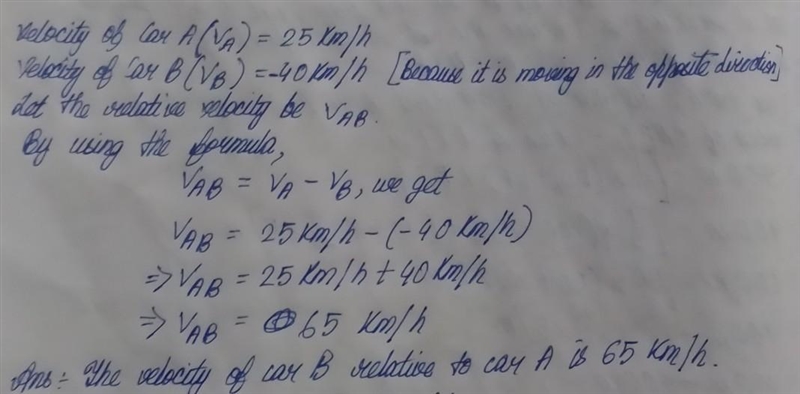 Velocity of Car A (V_A) = 25 Km/h
Velocity of Car B (V_B) = -40 Km/h [Because it is moving in the opposite direction]
Let the relative velocity be V_AB.
By using the formula,
V_AB = V_A - V_B, we get
V_AB = 25 Km/h - (-40 Km/h)
=> V_AB = 25 Km/h + 40 Km/h
=> V_AB = 65 Km/h
Ans:- The velocity of car B relative to car A is 65 Km/h.